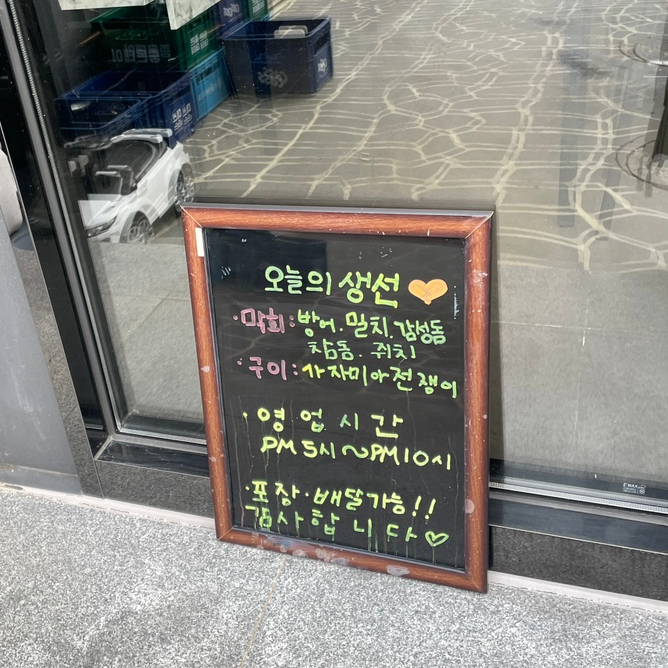 오늘의 생선
· 막회 : 방어. 밀치. 감성돔
참돔. 쥐치
· 구이 : 가자미아전쟁이
· 영 업 시 간
PM 5시 ~ PM 10시
· 포장 · 배달가능!!
감사합니다♡